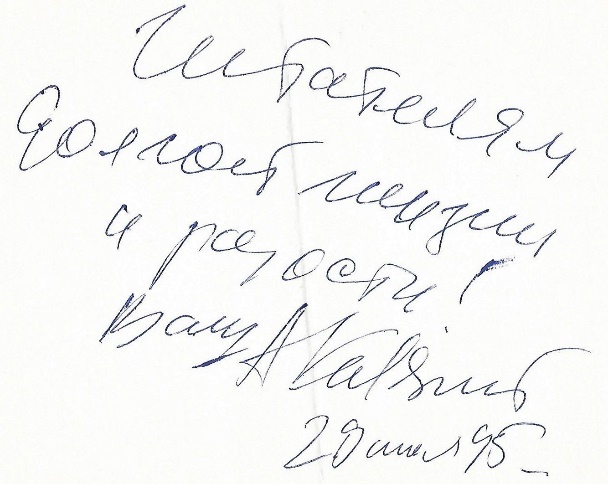 Читателям
долгой жизни
и радости!
Ваш А
20 июл 95